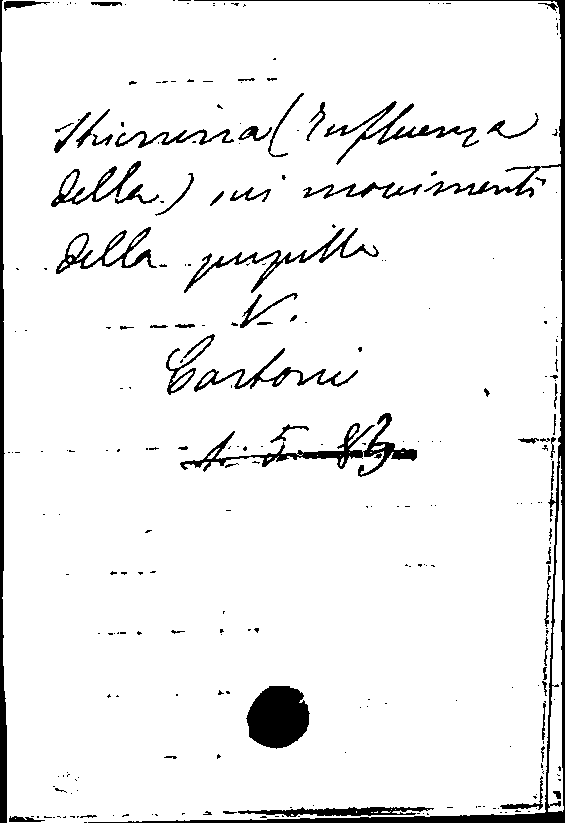 Stricnina (Influenza
della) sui movimenti
della pupilla
V.
Cartoni
A. 5. 83